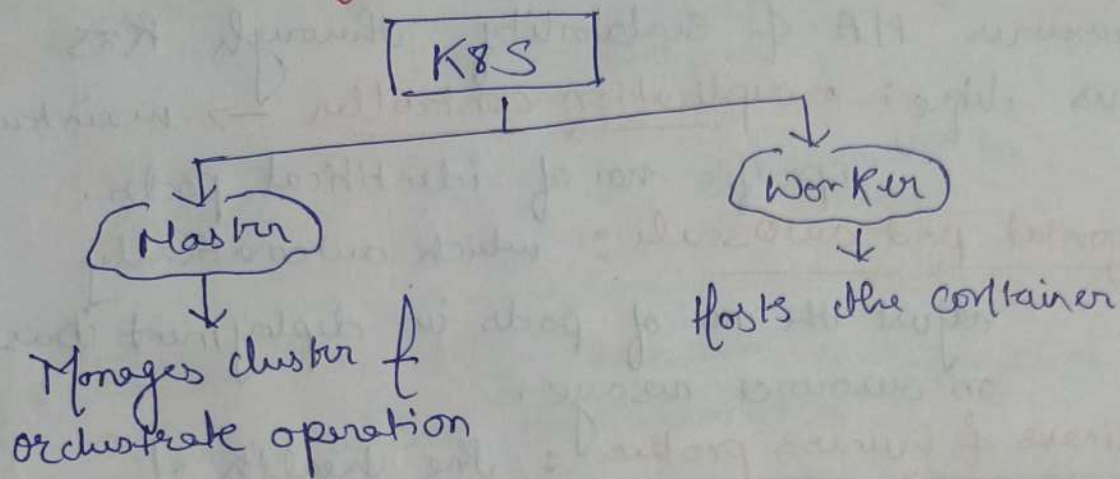 K8S
Master
Worker
Manages cluster &
orchestrate operation
Hosts the container